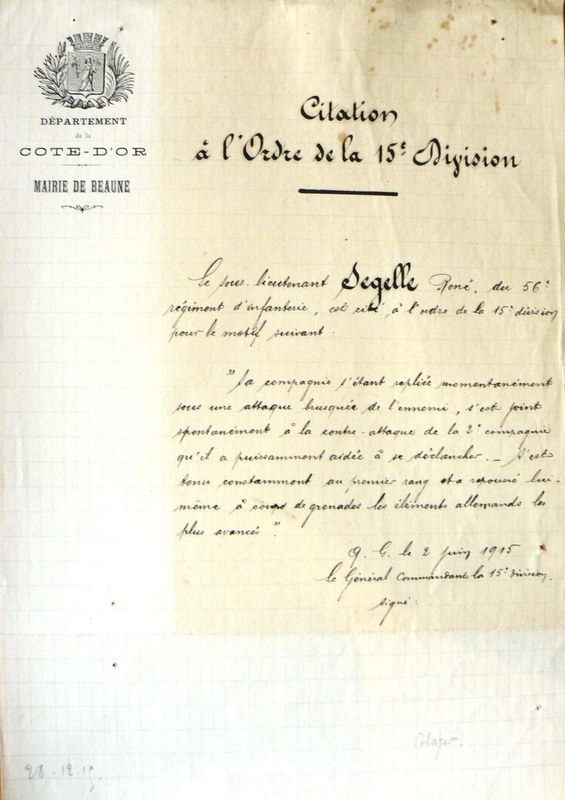 DÉPARTEMENT
de la
COTE-D'OR
MAIRIE DE BEAUNE
Citation
à l'Ordre de la 15e Division
Le sous-lieutenant Segelle René, du 56e
régiment d'infanterie, est cité à l'ordre de la 15e division
pour le motif suivant :
"Sa compagnie s'étant repliée momentanément
sous une attaque brusquée de l'ennemi, s'est joint
spontanément à la contre-attaque de la 2e compagnie
qu'il a puissamment aidée à se déclancher. _ S'est
tenu constamment au premier rang et a repoussé lui-
même à coups de grenades les éléments allemands les
plus avancés".
Q. G. le 2 Juin 1915
le Général Commandant la 15e division.
signé :
28-12-15